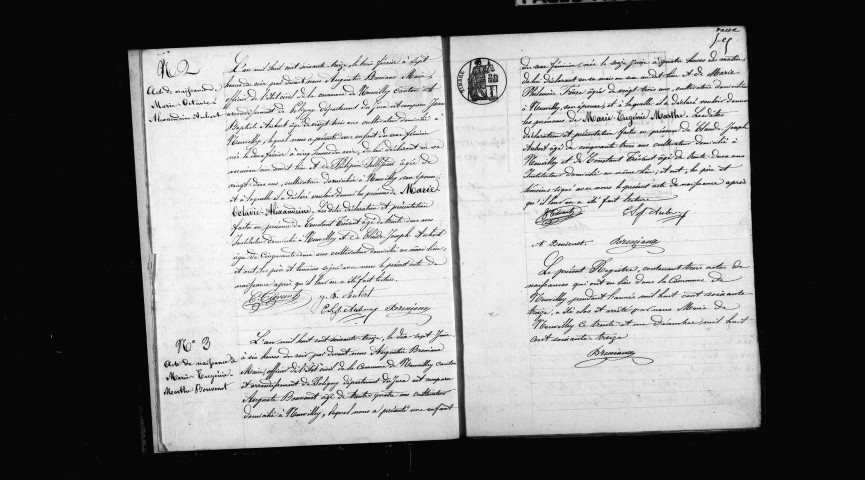 N° 2
Acte de naissance de
Marie Octavie
Alexandrine Aubert
L'an mil huit cent soixante treize, le trois février à sept
heures du soir par devant nous Augustin Breniaux Maire,
officier de l'état civil de la commune de Neuvilly canton et
arrondissement de Poligny département du Jura est comparu Jean
Baptiste Aubert âgé de vingt trois ans cultivateur domicilié à
Neuvilly, lequel nous a présenté un enfant du sexe féminin
née le deux février à cinq heures du soir, de lui déclarant en sa
maison au dit lieu et de Philippine âgée de
vingt deux ans, cultivatrice domiciliée à Neuvilly son épouse,
et à laquelle il a déclaré vouloir donner les prénoms de Marie
Octavie Alexandrine. Les dites déclaration et présentation
faites en présence de Constant Trécent âgé de trente deux ans
Instituteur domicilié à Neuvilly et de Claude Joseph Aubert
âgé de cinquante deux ans cultivateur domicilié en même lieu,
et ont, les père et témoins signé avec nous le présent acte de
naissance après qu'il leur en a été fait lecture.
J. B. Aubert
C. J. Aubert Breniaux
N° 3
Acte de naissance de
Marie Eugénie
Marthe Bouvenot
L'an mil huit cent soixante treize, le dix sept Juin
à six heures du soir par devant nous Augustin Breniaux
Maire, officier de l'état civil de la Commune de Neuvilly canton
et arrondissement de Poligny département du Jura est comparu
Auguste Bouvenot âgé de trente quatre ans cultivateur
domicilié à Neuvilly, lequel nous a présenté une enfant
du sexe féminin, née le seize Juin à quatre heures du matin,
de lui déclarant en sa maison au dit lieu et de Marie
Philomène âgée de vingt trois ans, cultivatrice domiciliée
à Neuvilly son épouse, et à laquelle il a déclaré vouloir donner
les prénoms de Marie Eugénie Marthe. Les dites
déclaration et présentation faites en présence de Claude Joseph
Aubert âgé de cinquante trois ans cultivateur domicilié à
Neuvilly et de Constant Trécent âgé de trente deux ans
Instituteur domicilié en même lieu, et ont, les père et
témoins signé avec nous le présent acte de naissance après
qu'il leur en a été fait lecture
C. J. Aubert
A Bouvenot Breniaux
Le présent Registre, contenant trois actes de
naissances qui ont eu lieu dans la Commune de
Neuvilly, pendant l'année mil huit cent soixante
treize, a été clos et arrêté par nous Maire de
Neuvilly le trente et un décembre mil huit
cent soixante treize
Breniaux